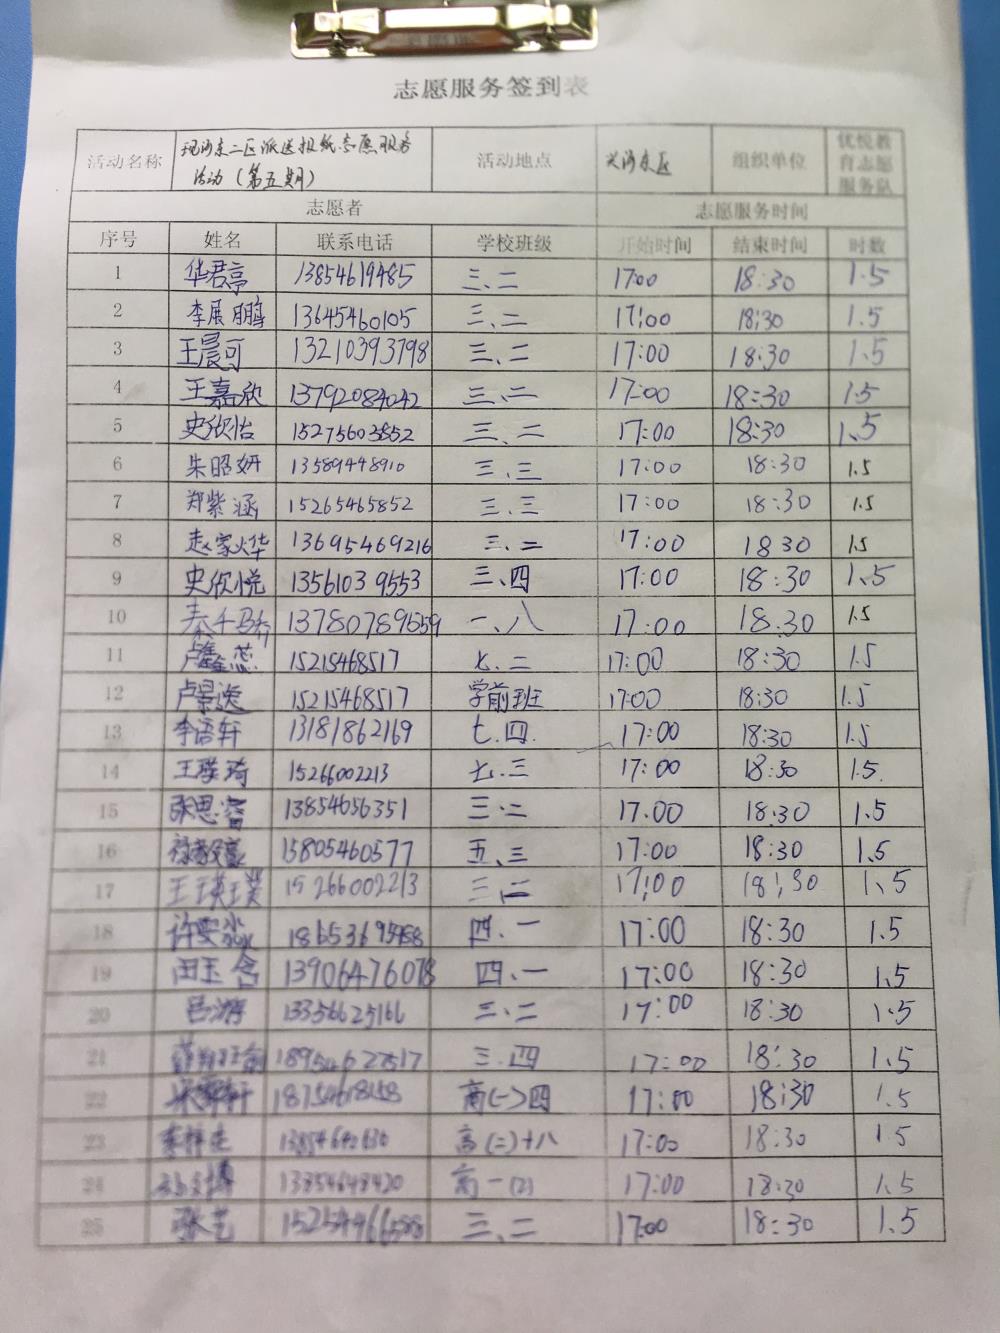 志愿服务签到表
活动名称 东二区派送报纸志愿服务活动（第五期） 活动地点 东区 组织单位 优悦教育志愿服务队
志愿者 志愿服务时间
序号 姓名 联系电话 学校班级 开始时间 结束时间 时数
1 华君亭 13854619485 三、二 17:00 18:30 1.5
2 李展鹏 13645460105 三、二 17:00 18:30 1.5
3 王晨可 13210393798 三、二 17:00 18:30 1.5
4 王嘉欣 13792084042 三、二 17:00 18:30 1.5
5 史欣怡 15275603852 三、二 17:00 18:30 1.5
6 朱昭妍 13589448910 三、三 17:00 18:30 1.5
7 郑紫涵 15265465852 三、三 17:00 18:30 1.5
8 赵家烨 13695469216 三、二 17:00 18 30 1.5
9 史欣悦 13561039553 三、四 17:00 18:30 1.5
10 13780789559 一、八 17:00 18:30 1.5
11 15215468517 七、二 17:00 18:30 1.5
12 卢景逸 15215468517 学前班 17:00 18:30 1.5
13 李语轩 13181862169 七.四. 17:00 18:30 1.5
14 王瑛琦 15266002213 七、三 17:00 18:30 1.5
15 张思睿 13854656351 三、二 17:00 18:30 1.5
16 15805460577 五、三 17:00 18:30 1.5
17 王瑛璞 15266002213 三、二 17:00 18:30 1.5
18 许雯淼 四、一 17:00 18:30 1.5
19 田玉含 13906476078 四、一 17:00 18:30 1.5
20 吕游 13356625166 三、二 17:00 18:30 1.5
21 三、四 17:00 18:30 1.5
22 18754618158 高(一)四 17:00 18:30 1.5
23 高(二)十八 17:00 18:30 1.5
24 13854648420 高一(2) 17:00 18:30 1.5
25 张艺 三、二 17:00 18:30 1.5